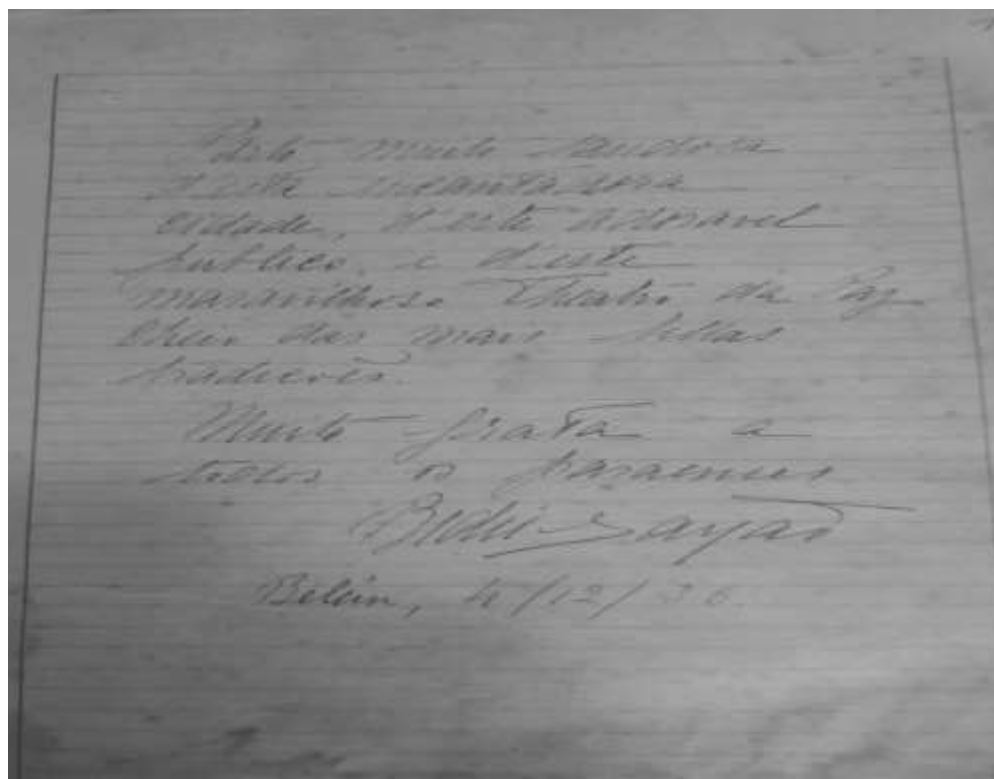 Parto muito saudosa
d'esta encantadora
cidade, d'este adoravel
publico, e d'este
maravilhoso Theatro da Paz
cheio das mais bellas
tradicções.
Muito grata a
todos os paraenses
Bidú Sayão
Belém, 4/12/36.